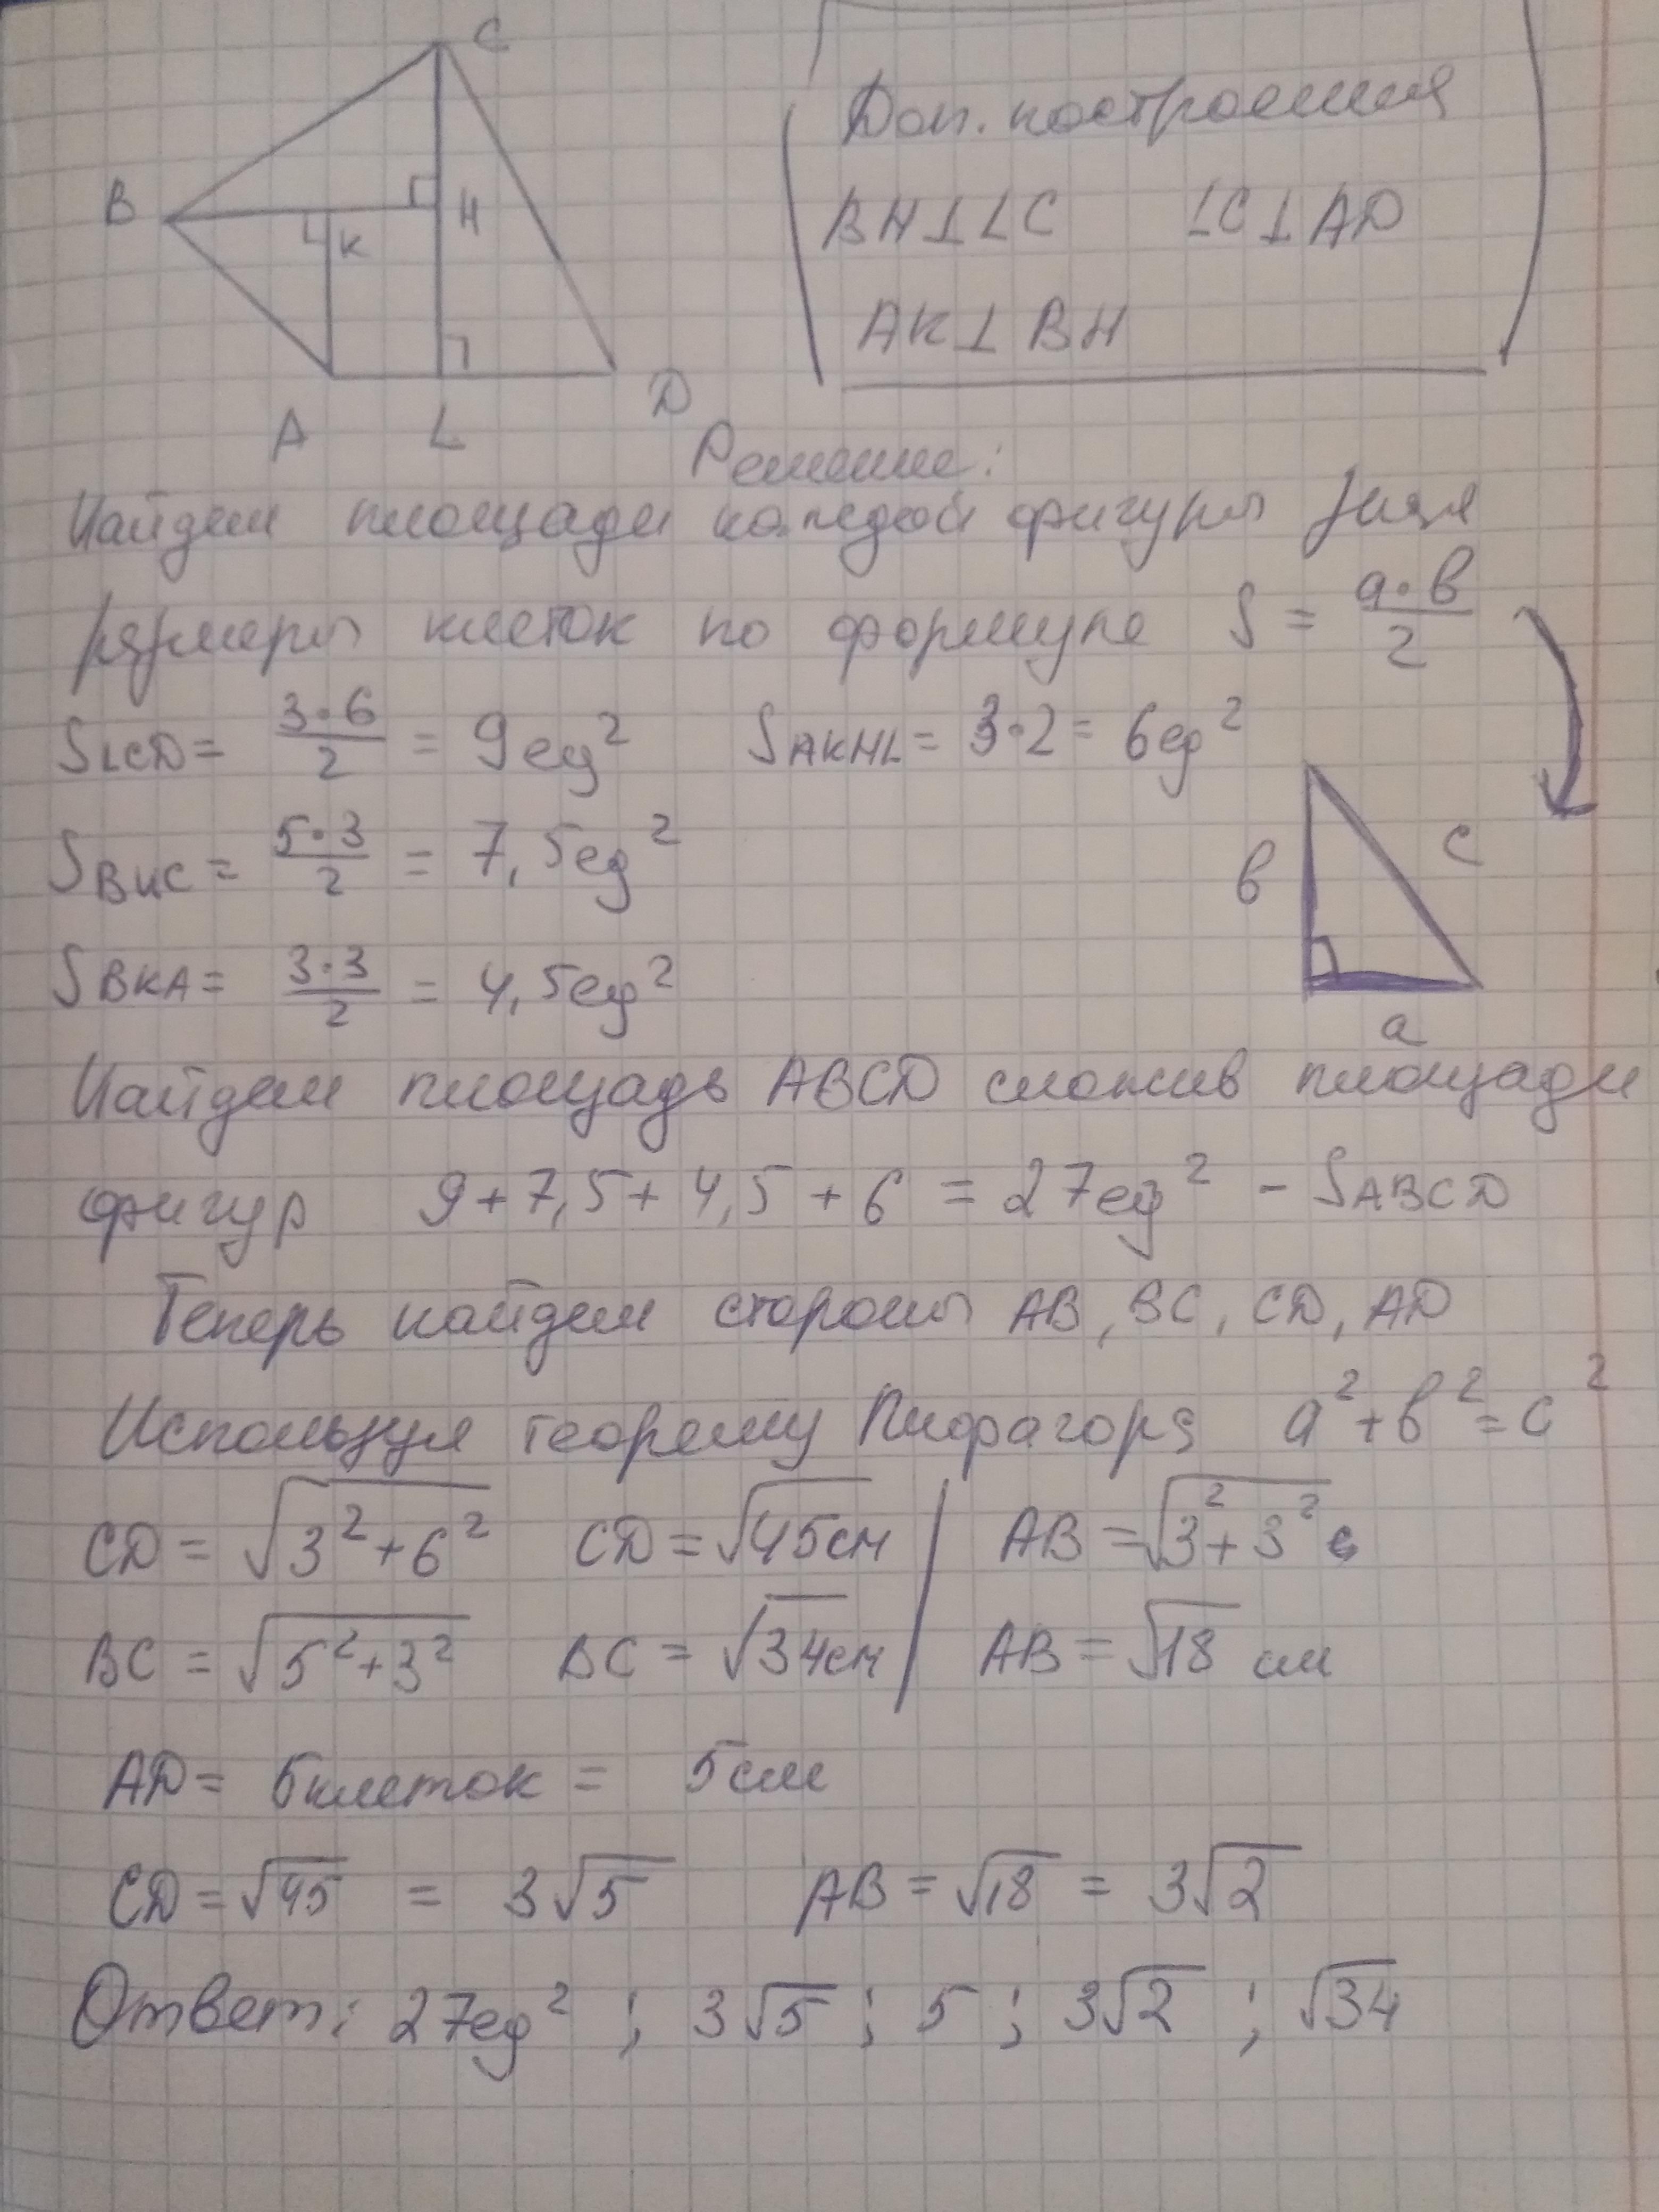 C
B
H
K
A
L
D
Доп. построения
BH⊥LC ⊥C⊥AD
AK⊥BH
Решение:
Найдем площади каждой фигуры зная
размеры клеток по формуле S = a·b/2
SLCD = 3·6/2 = 9ед² SAKHL = 3·2 = 6ед²
SBHC = 5·3/2 = 7,5ед²
SBKA = 3·3/2 = 4,5ед²
в
c
a
Найдем площадь ABCD сложив площади
фигур 9+7,5+4,5+6 = 27ед² - SABCD
Теперь найдем стороны AB, BC, CD, AD
Используя теорему Пифагора a²+в²=c²
CD = √3²+6² CD = √45см AB = √3²+3²
BC = √5²+3² BC = √34см AB = √18 см
AD = 5клеток = 5см
CD = √45 = 3√5 AB = √18 = 3√2
Ответ: 27ед² ; 3√5 ; 5 ; 3√2 ; √34